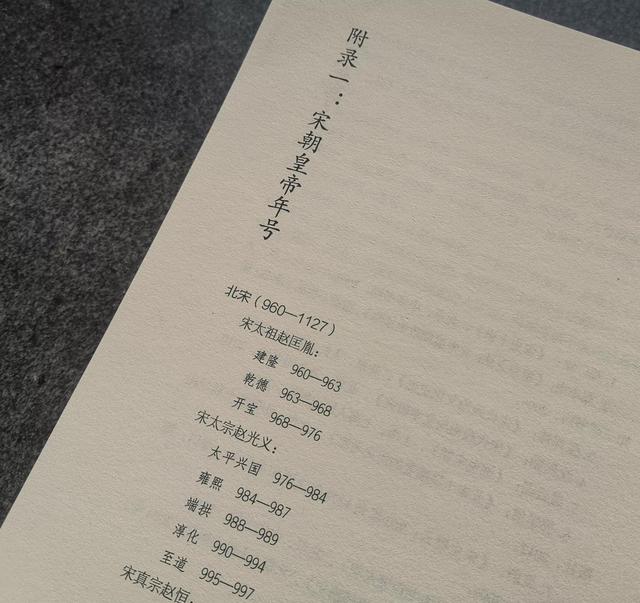 附录一：宋朝皇帝年号
北宋（960—1127）
宋太祖赵匡胤：
建隆 960—963
乾德 963—968
开宝 968—976
宋太宗赵光义：
太平兴国 976—984
雍熙 984—987
端拱 988—989
淳化 990—994
至道 995—997
宋真宗赵恒：